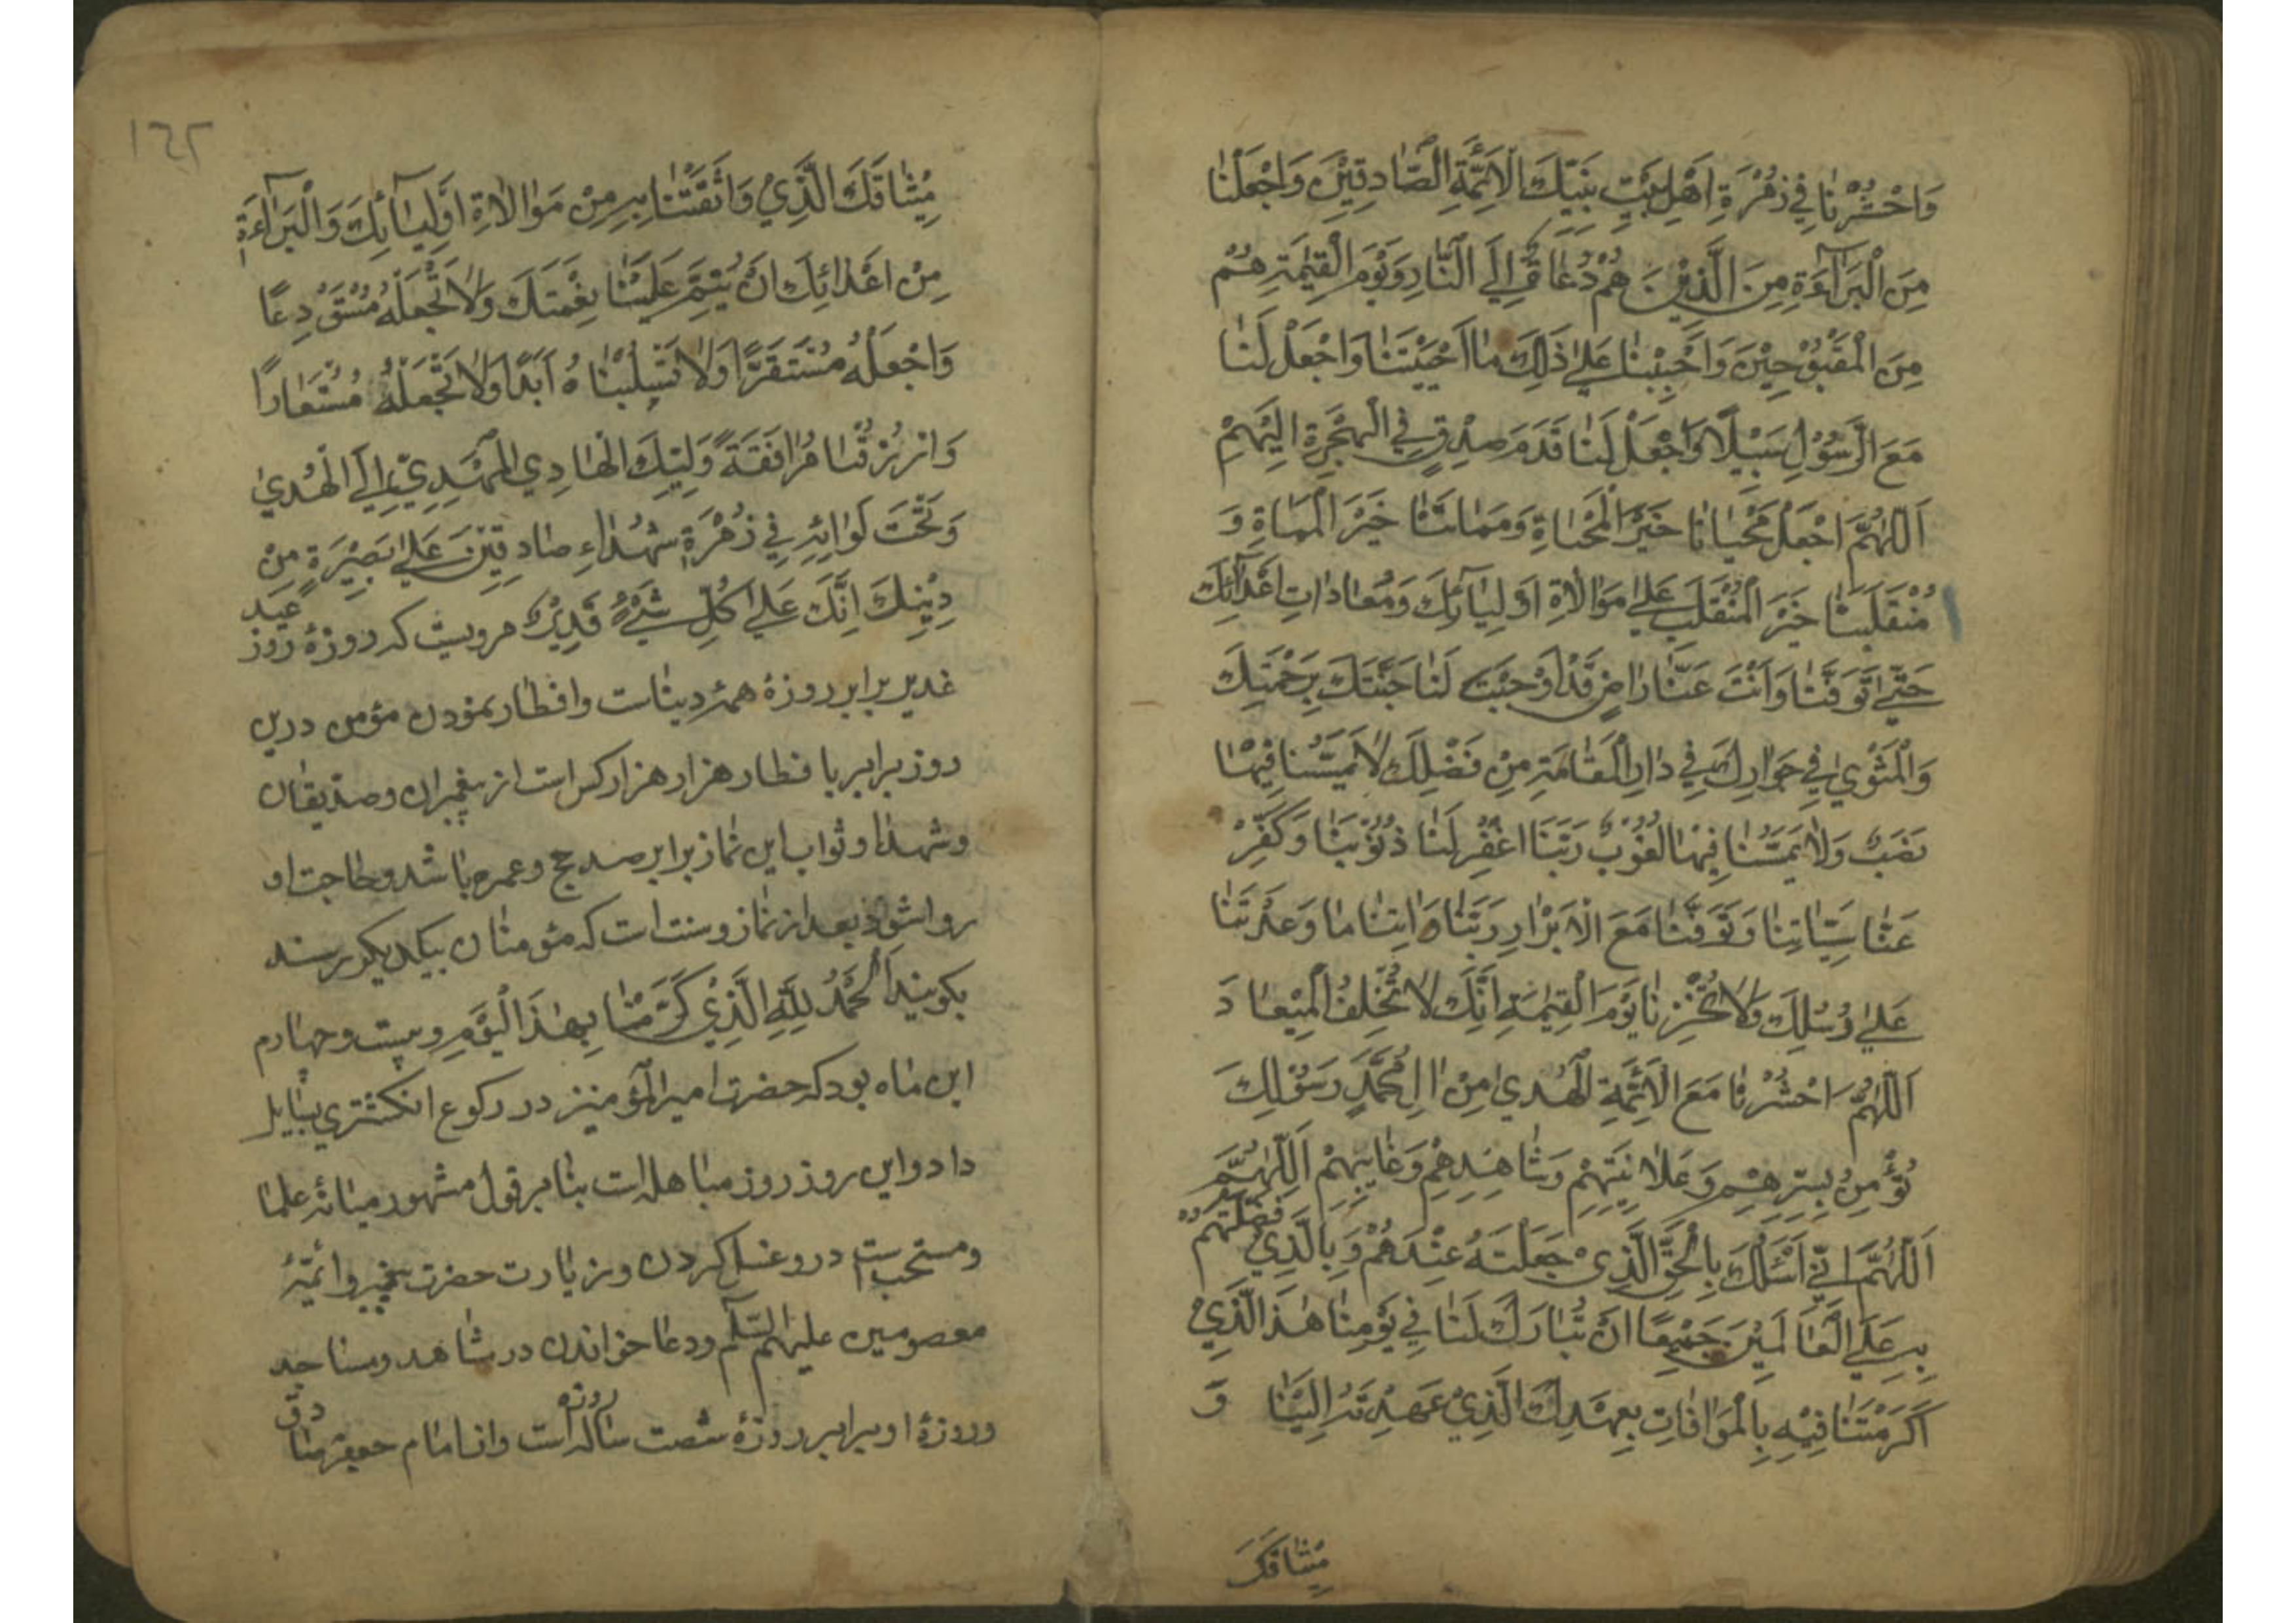 وَاحْشُرْنَا فِي زُمْرَةِ اَهْلِ بَيْتِ نَبِيِّكَ الْاَئِمَّةِ الصَّادِقِيْنَ وَاجْعَلْنَا
مِنَ الْبَرَآءَةِ مِنَ الَّذِيْنَ هُمْ دُعَاةٌ اِلَى النَّارِ وَيَوْمَ الْقِيٰمَةِ هُمْ
مِنَ الْمَقْبُوْحِيْنَ وَاَحْيِنَا عَلٰى ذٰلِكَ مَا اَحْيَيْتَنَا وَاجْعَلْ لَنَا
مَعَ الرَّسُوْلِ سَبِيْلًا وَاجْعَلْ لَنَا قَدَمَ صِدْقٍ فِي الْهِجْرَةِ اِلَيْهِمْ
اَللّٰهُمَّ اجْعَلْ مَحْيَانَا خَيْرَ الْمَحْيَاةِ وَمَمَاتَنَا خَيْرَ الْمَمَاةِ وَ
مُنْقَلَبَنَا خَيْرَ الْمُنْقَلَبِ عَلٰى مَوَالَاةِ اَوْلِيَآئِكَ وَمُعَادَاتِ اَعْدَآئِكَ
حَتّٰى تَوَفَّنَا وَاَنْتَ عَنَّا رَاضٍ قَدْ اَوْجَبْتَ لَنَا جَنَّتَكَ بِرَحْمَتِكَ
وَالْمَثْوٰى فِي جَوَارِكَ فِي دَارِ الْمَقَامَةِ مِنْ فَضْلِكَ لَا يَمَسُّنَا فِيْهَا
نَصَبٌ وَلَا يَمَسُّنَا فِيْهَا لُغُوْبٌ رَبَّنَا اغْفِرْ لَنَا ذُنُوْبَنَا وَكَفِّرْ
عَنَّا سَيِّئَاتِنَا وَتَوَفَّنَا مَعَ الْاَبْرَارِ رَبَّنَا وَاٰتِنَا مَا وَعَدْتَنَا
عَلٰى رُسُلِكَ وَلَا تُخْزِنَا يَوْمَ الْقِيٰمَةِ اِنَّكَ لَا تُخْلِفُ الْمِيْعَادَ
اَللّٰهُمَّ احْشُرْنَا مَعَ الْاَئِمَّةِ الْهُدٰى مِنْ اٰلِ مُحَمَّدٍ رَسُوْلِكَ
نُؤْمِنُ بِسِرِّهِمْ وَعَلَانِيَتِهِمْ وَشَاهِدِهِمْ وَغَائِبِهِمْ اَللّٰهُمَّ
اَللّٰهُمَّ اِنِّي اَسْئَلُكَ بِالْحَقِّ الَّذِيْ جَعَلْتَهُ عِنْدَهُمْ وَبِالَّذِيْ فَضَّلْتَهُمْ
بِهِ عَلَى الْعَالَمِيْنَ جَمِيْعًا اَنْ تُبَارِكَ لَنَا فِي يَوْمِنَا هٰذَا الَّذِيْ
اَكْرَمْتَنَا فِيْهِ بِالْمُوَافَاتِ بِعَهْدِكَ الَّذِيْ عَهِدْتَهُ اِلَيْنَا وَ
مِيْثَاقَكَ
١٦٢
مِيْثَاقَكَ الَّذِيْ وَاثَقْتَنَا بِهِ مِنْ مَوَالَاةِ اَوْلِيَآئِكَ وَالْبَرَآءَةِ
مِنْ اَعْدَائِكَ اَنْ يُتِمَّ عَلَيْنَا نِعْمَتَكَ وَلَا تَجْعَلْهُ مُسْتَوْدِعًا
وَاجْعَلْهُ مُسْتَقَرًّا وَلَا تَسْلِبْنَاهُ اَبَدًا وَلَا تَجْعَلْهُ مُسْتَعَارًا
وَارْزُقْنَا مُرَافَقَةَ وَلِيِّكَ الْهَادِي الْمَهْدِيِّ اِلَى الْهُدٰى
وَتَحْتَ لَوَائِهِ فِي زُمْرَةِ شُهَدَاءِ صَادِقِيْنَ عَلٰى بَصِيْرَةٍ مِنْ
دِيْنِكَ اِنَّكَ عَلٰى كُلِّ شَيْءٍ قَدِيْرٌ مرويست كه روزهٔ روز عيد
غدير برابر روزهٔ همهٔ دنياست وافطار نمودن مؤمن درين
روز برابر با فطار هزار هزار كس است از پيغمبران وصديقان
وشهدا وثواب اين نماز برابر صد حج وعمره باشد وحاجت او
روا شود بعد از نماز وسنت است كه مؤمنان بيكديكر رسند
بكويند اَلْحَمْدُ لِلّٰهِ الَّذِيْ كَرَّمَنَا بِهٰذَا الْيَوْمِ وبيست وچهارم
اين ماه بود كه حضرت امير المؤمنين در ركوع انكشتري بسايل
داد واين روز روز مباهله است بنا بر قول مشهور ميانهٔ علما
ومستحب است درو غسل كردن وزيارت حضرت پيغمبر وائمّهٔ
معصومين عليهم السّلم ودعا خواندن در مشاهد ومساجد
وروزهٔ او برابر روزهٔ شصت ساله است واز امام جعفر صادق
روزه